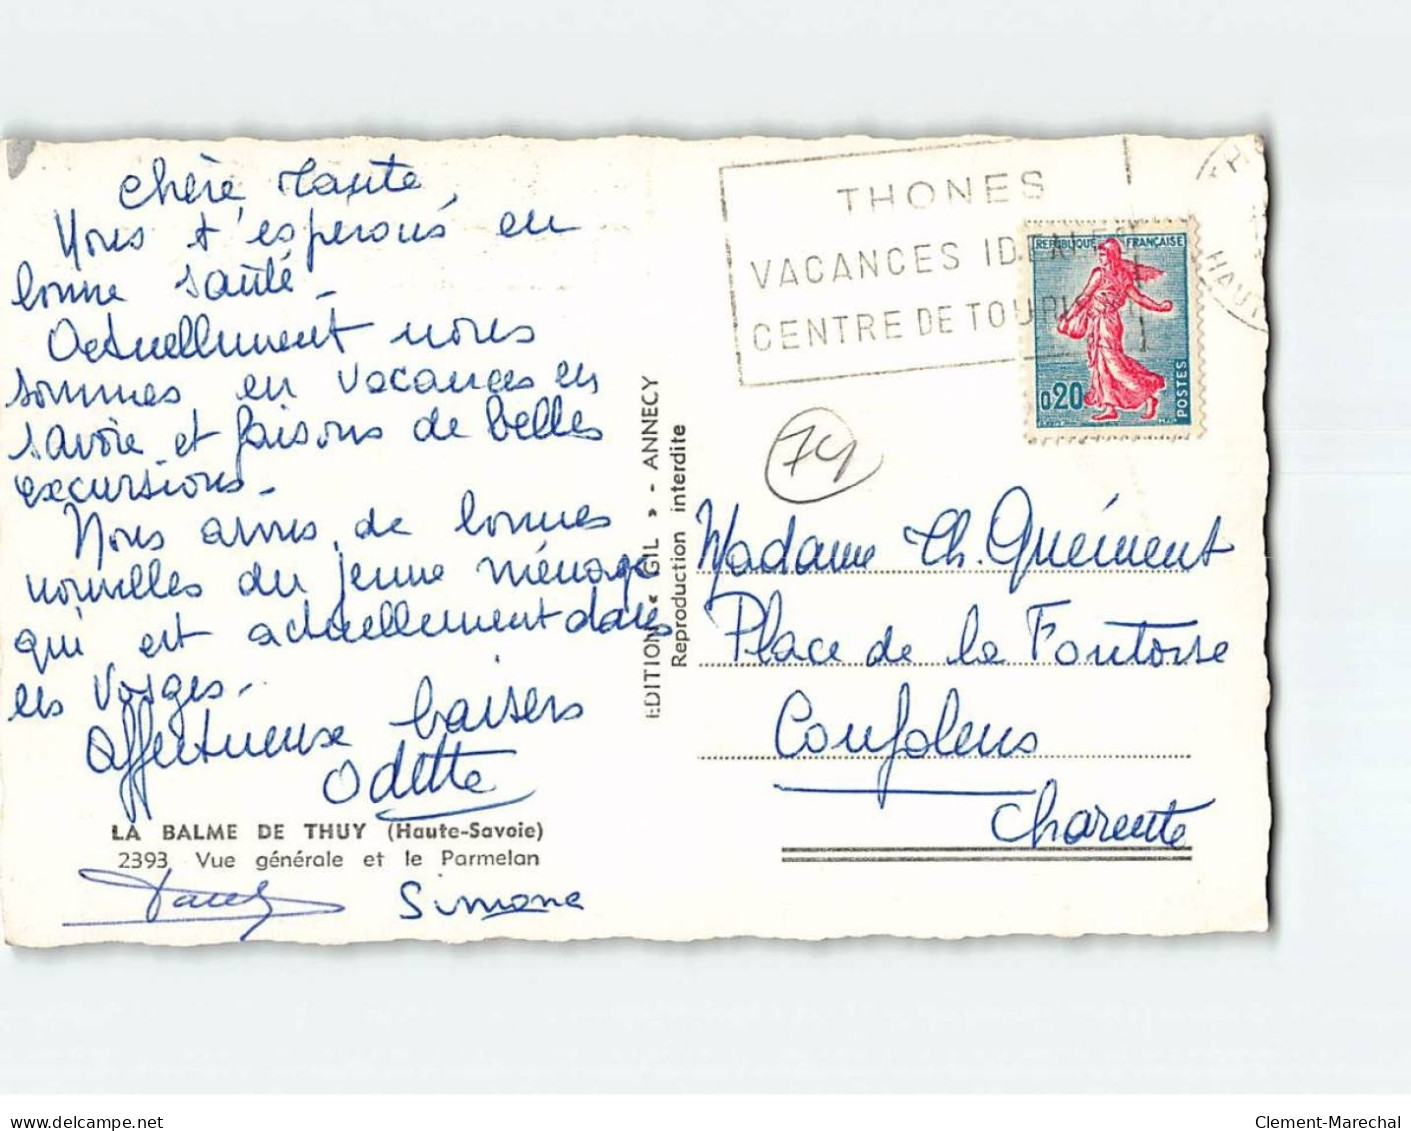 Chère Tante,
Nous t'esperons en
bonne santé.
Actuellement nous
sommes en vacances en
Savoie et faisons de belles
excursions.
Nous avons de bonnes
nouvelles du jeune ménage
qui est actuellement dans
les Vosges.
Affectueuse baisers
Odette
LA BALME DE THUY (Haute-Savoie)
2393 Vue générale et le Parmelan
Simone
EDITION « GIL » - ANNECY
Reproduction interdite
THONES
VACANCES IDEALES
CENTRE DE TOURIS
HAUT
REPUBLIQUE FRANÇAISE
0,20
POSTES
74
Madame Th. Quéinent
Place de la Fontorse
Confolens
Charente
Clement-Marechal
www.delcampe.net